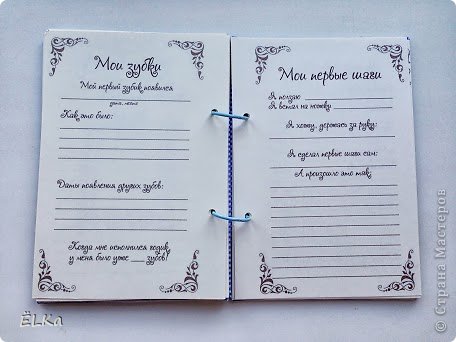 Мои зубки
Мой первый зубик появился
дата, место
Как это было:
Даты появления других зубов:
Когда мне исполнился годик,
у меня было уже ___ зубов!
Мои первые шаги
Я ползаю
Я встал на ножку
Я хожу, держась за руку:
Я сделал первые шаги сам:
А произошло это так:
ЁLKa
© Страна Мастеров